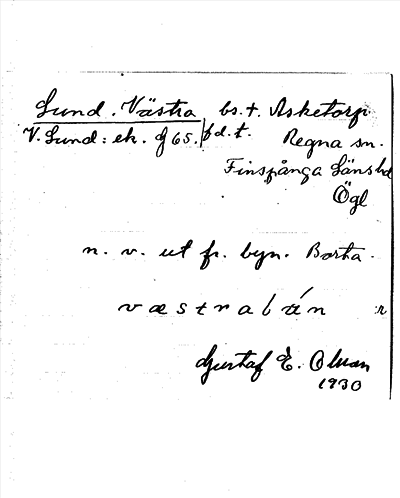 Lund. Västra bs. t. Asketorp
V. Lund: ek. g 65. fd. t. Regna sn.
Finspånga länshd
Ögl
n. v. ut fr. byn. Borta.
Gustaf E. Olsson
1930